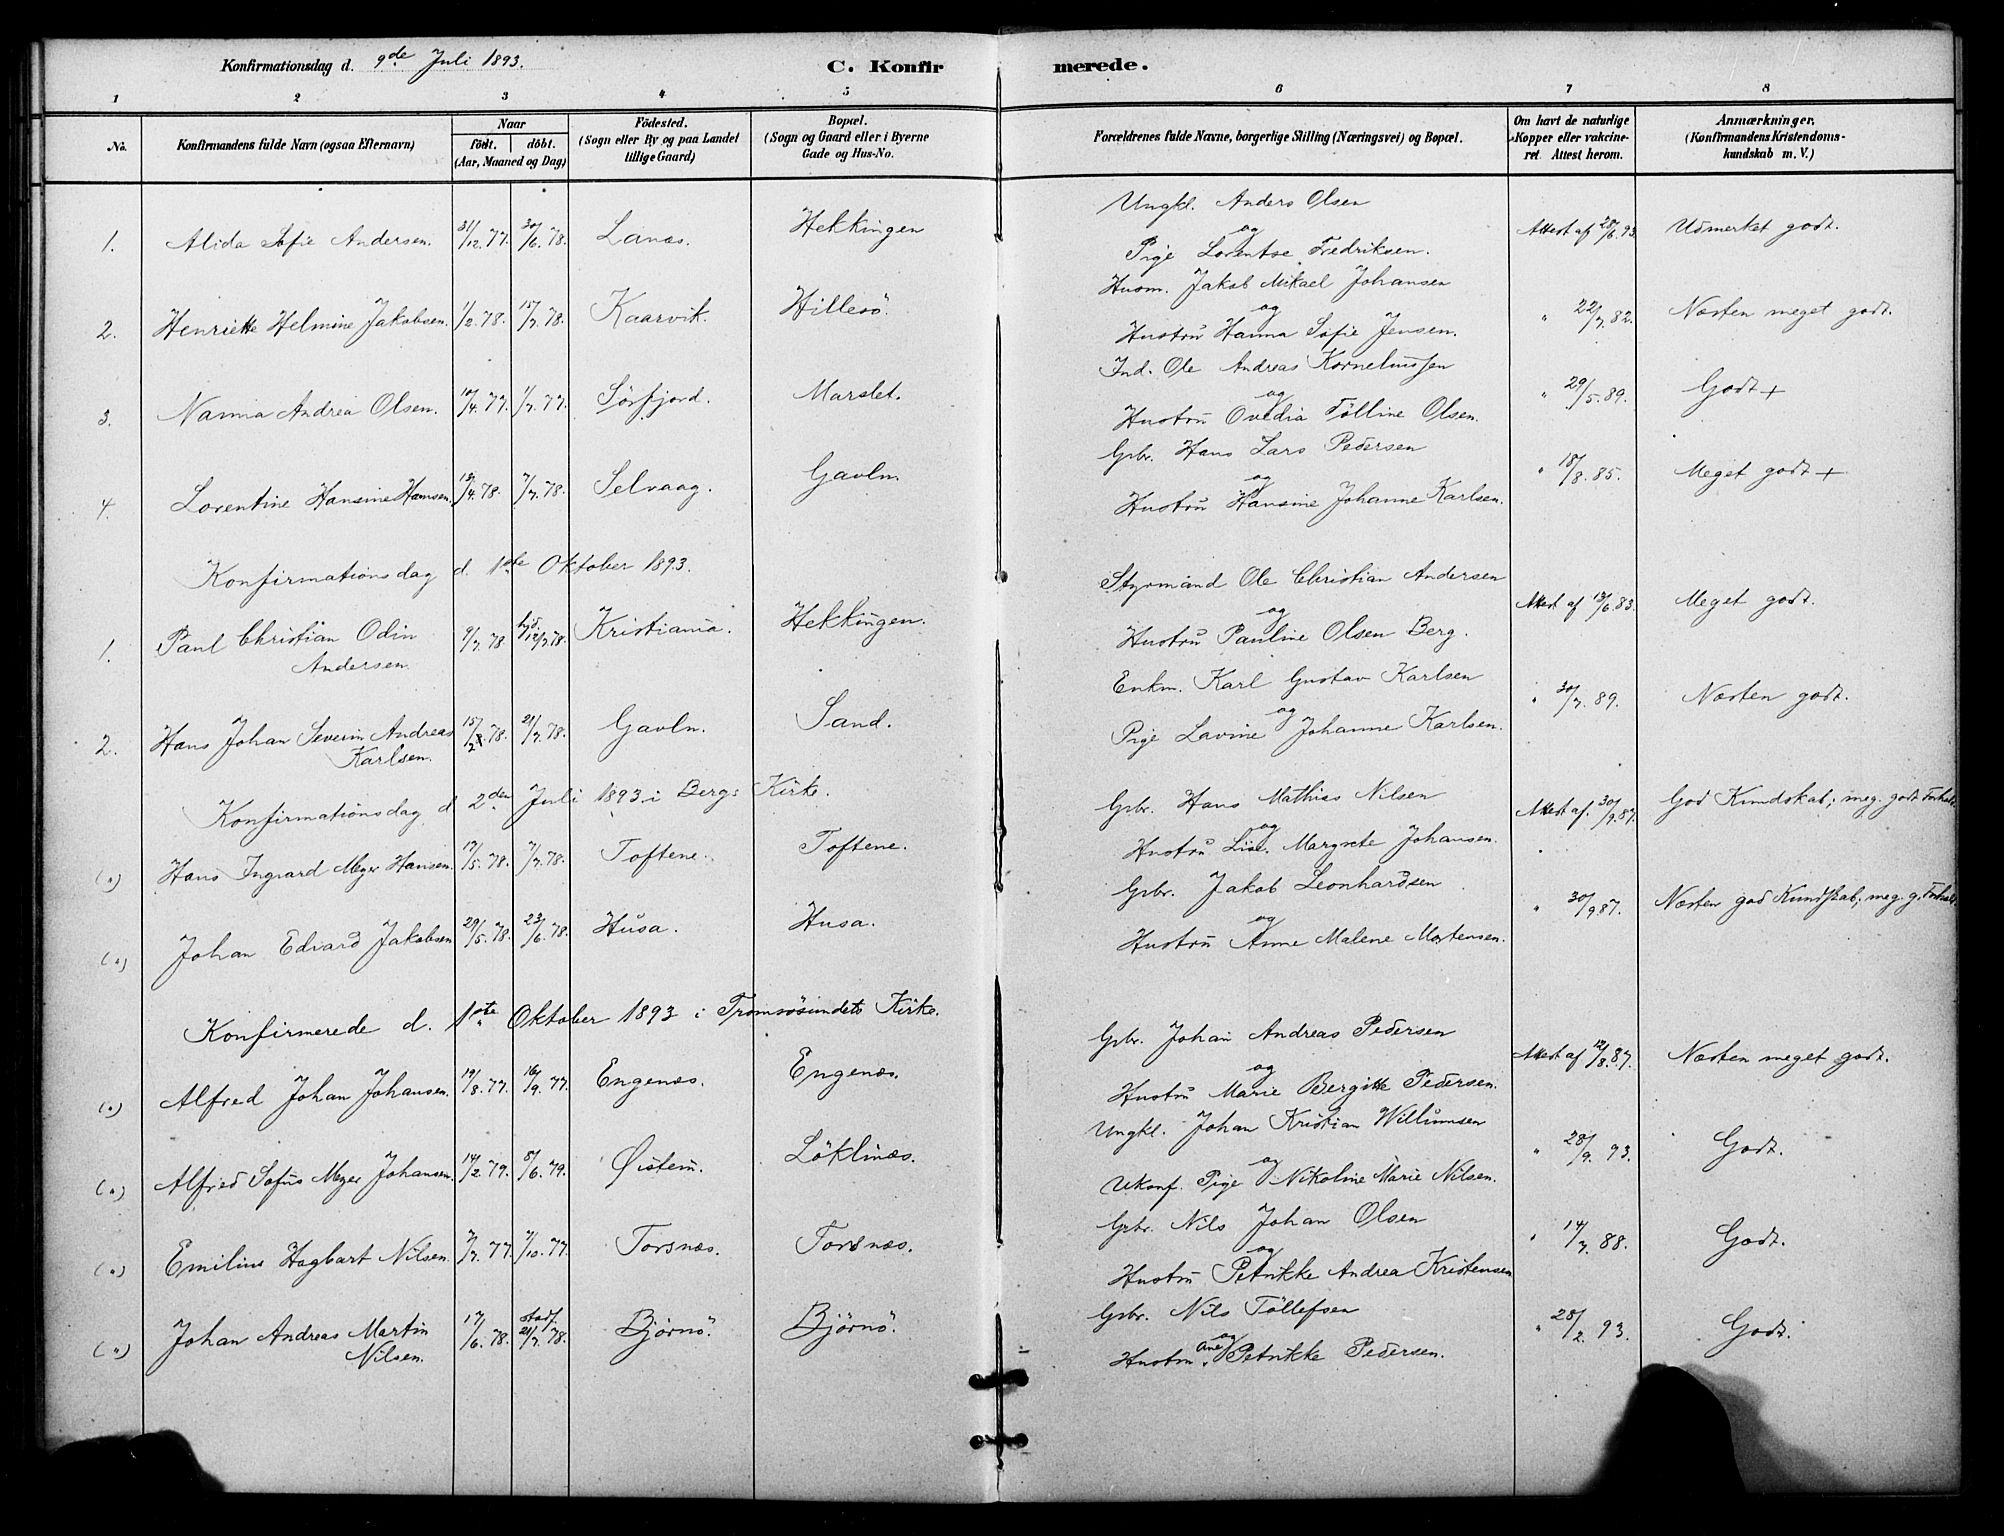 Konfirmationsdag d. 9de Juli 1893.
C. Konfirmerede.
1 2 3 4 5 6 7 8
No.
Konfirmandens fulde Navn (ogsaa Efternavn)
Naar
født. døbt.
(Aar, Maaned og Dag)
Födested.
(Sogn eller By og paa Landet
tillige Gaard)
Bopæl.
(Sogn og Gaard eller i Byerne
Gade og Hus-No.
Forældrenes fulde Navne, borgerlige Stilling (Næringsvei) og Bopæl.
Om havt de naturlige
Kopper eller vakcine-
ret. Attest herom.
Anmærkninger.
(Konfirmandens Kristendoms-
kundskab m. V.)
Ungkl. Anders Olsen
1. Alida Sofie Andersen. 31/12.77. 30/6.78. Lanæs. Hekkingen og Attest af 28/6.93. Udmerket godt.
Pige Lorentse Fredriksen.
Husm. Jakob Mikael Johansen
2. Henriette Helmine Jakobsen. 1/2.78. 15/7.78. Kaarvik. Hillesö. og " 22/7.82. Næsten meget godt.
Hustru Hanna Sofie Jensen.
Ind. Ole Andreas Korneliussen
3. Nanna Andrea Olsen. 10/4.77. 1/7.77. Sörfjord. Marslet. og " 29/5.89. Godt +
Hustru Ovedia Tölline Olsen.
Gbr. Hans Lars Pedersen
4. Lorentine Hansine Hansen. 12/4.78. 7/7.78. Selvaag. Gavln. og " 18/8.85. Meget godt +
Hustru Hansine Johanne Karlsen.
Konfirmationsdag d. 1ste Oktober 1893.
Styrmand Ole Christian Andersen
1. Paul Christian Odin 9/7.78. hjd. 12/7.78. Kristiania. Hekkingen. og Attest af 13/6.83. Meget godt.
Andersen. Hustru Pauline Olsen Berg.
Enkm. Karl Gustav Karlsen
2. Hans Johan Severin Andreas 15/2.78. 21/7.78. Gavln. Sand. og " 30/7.89. Næsten godt.
Karlsen. Pige Lavine Johanne Karlsen.
Konfirmationsdag d 2den Juli 1893 i Bergs Kirke.
Gbr. Hans Mathias Nilsen
(") Hans Ingvard Meyer Hansen. 17/5.78. 7/7.78. Toftene. Toftene. og Attest af. 30/9.87. God Kundskab; meg. godt Forhold
Hustru Lise Margrete Johansen.
Gbr. Jakob Leonhardsen
(") Johan Edvard Jakobsen 29/5.78. 23/6.78. Husa. Husa. og " 30/9.87. Næsten god Kundskab; meg. g. Forhold
Hustru Anne Malene Mortensen.
Konfirmerede d. 1ste Oktober 1893 i Tromsösundets Kirke.
Gbr. Johan Andreas Pedersen
(") Alfred Johan Johansen. 19/8.77. 16/9.77. Engenæs. Engenæs. og Attest af 12/8.87. Næsten meget godt.
Hustru Marie Bergitte Pedersen.
Ungkl. Johan Kristian Willumsen
(") Alfred Sofus Meyer Johansen. 14/2.79. 8/6.79. Øistein. Löklinæs. og " 28/9.93. Godt.
Ukonf. Pige Nikoline Marie Nilsen.
Gbr. Nils Johan Olsen
(") Emilius Hagbart Nilsen. 7/7.77. 7/10.77. Torsnæs. Torsnæs. og " 14/7.88. Godt.
Hustru Petrikke Andrea Kristensen
Gbr. Nils Töllefsen
(") Johan Andreas Martin 17/6.78. stadf. 21/7.78. Bjørnö. Bjørnö. og " 28/2.93. Godt.
Nilsen. Hustru Ane Petrikke Pedersen.